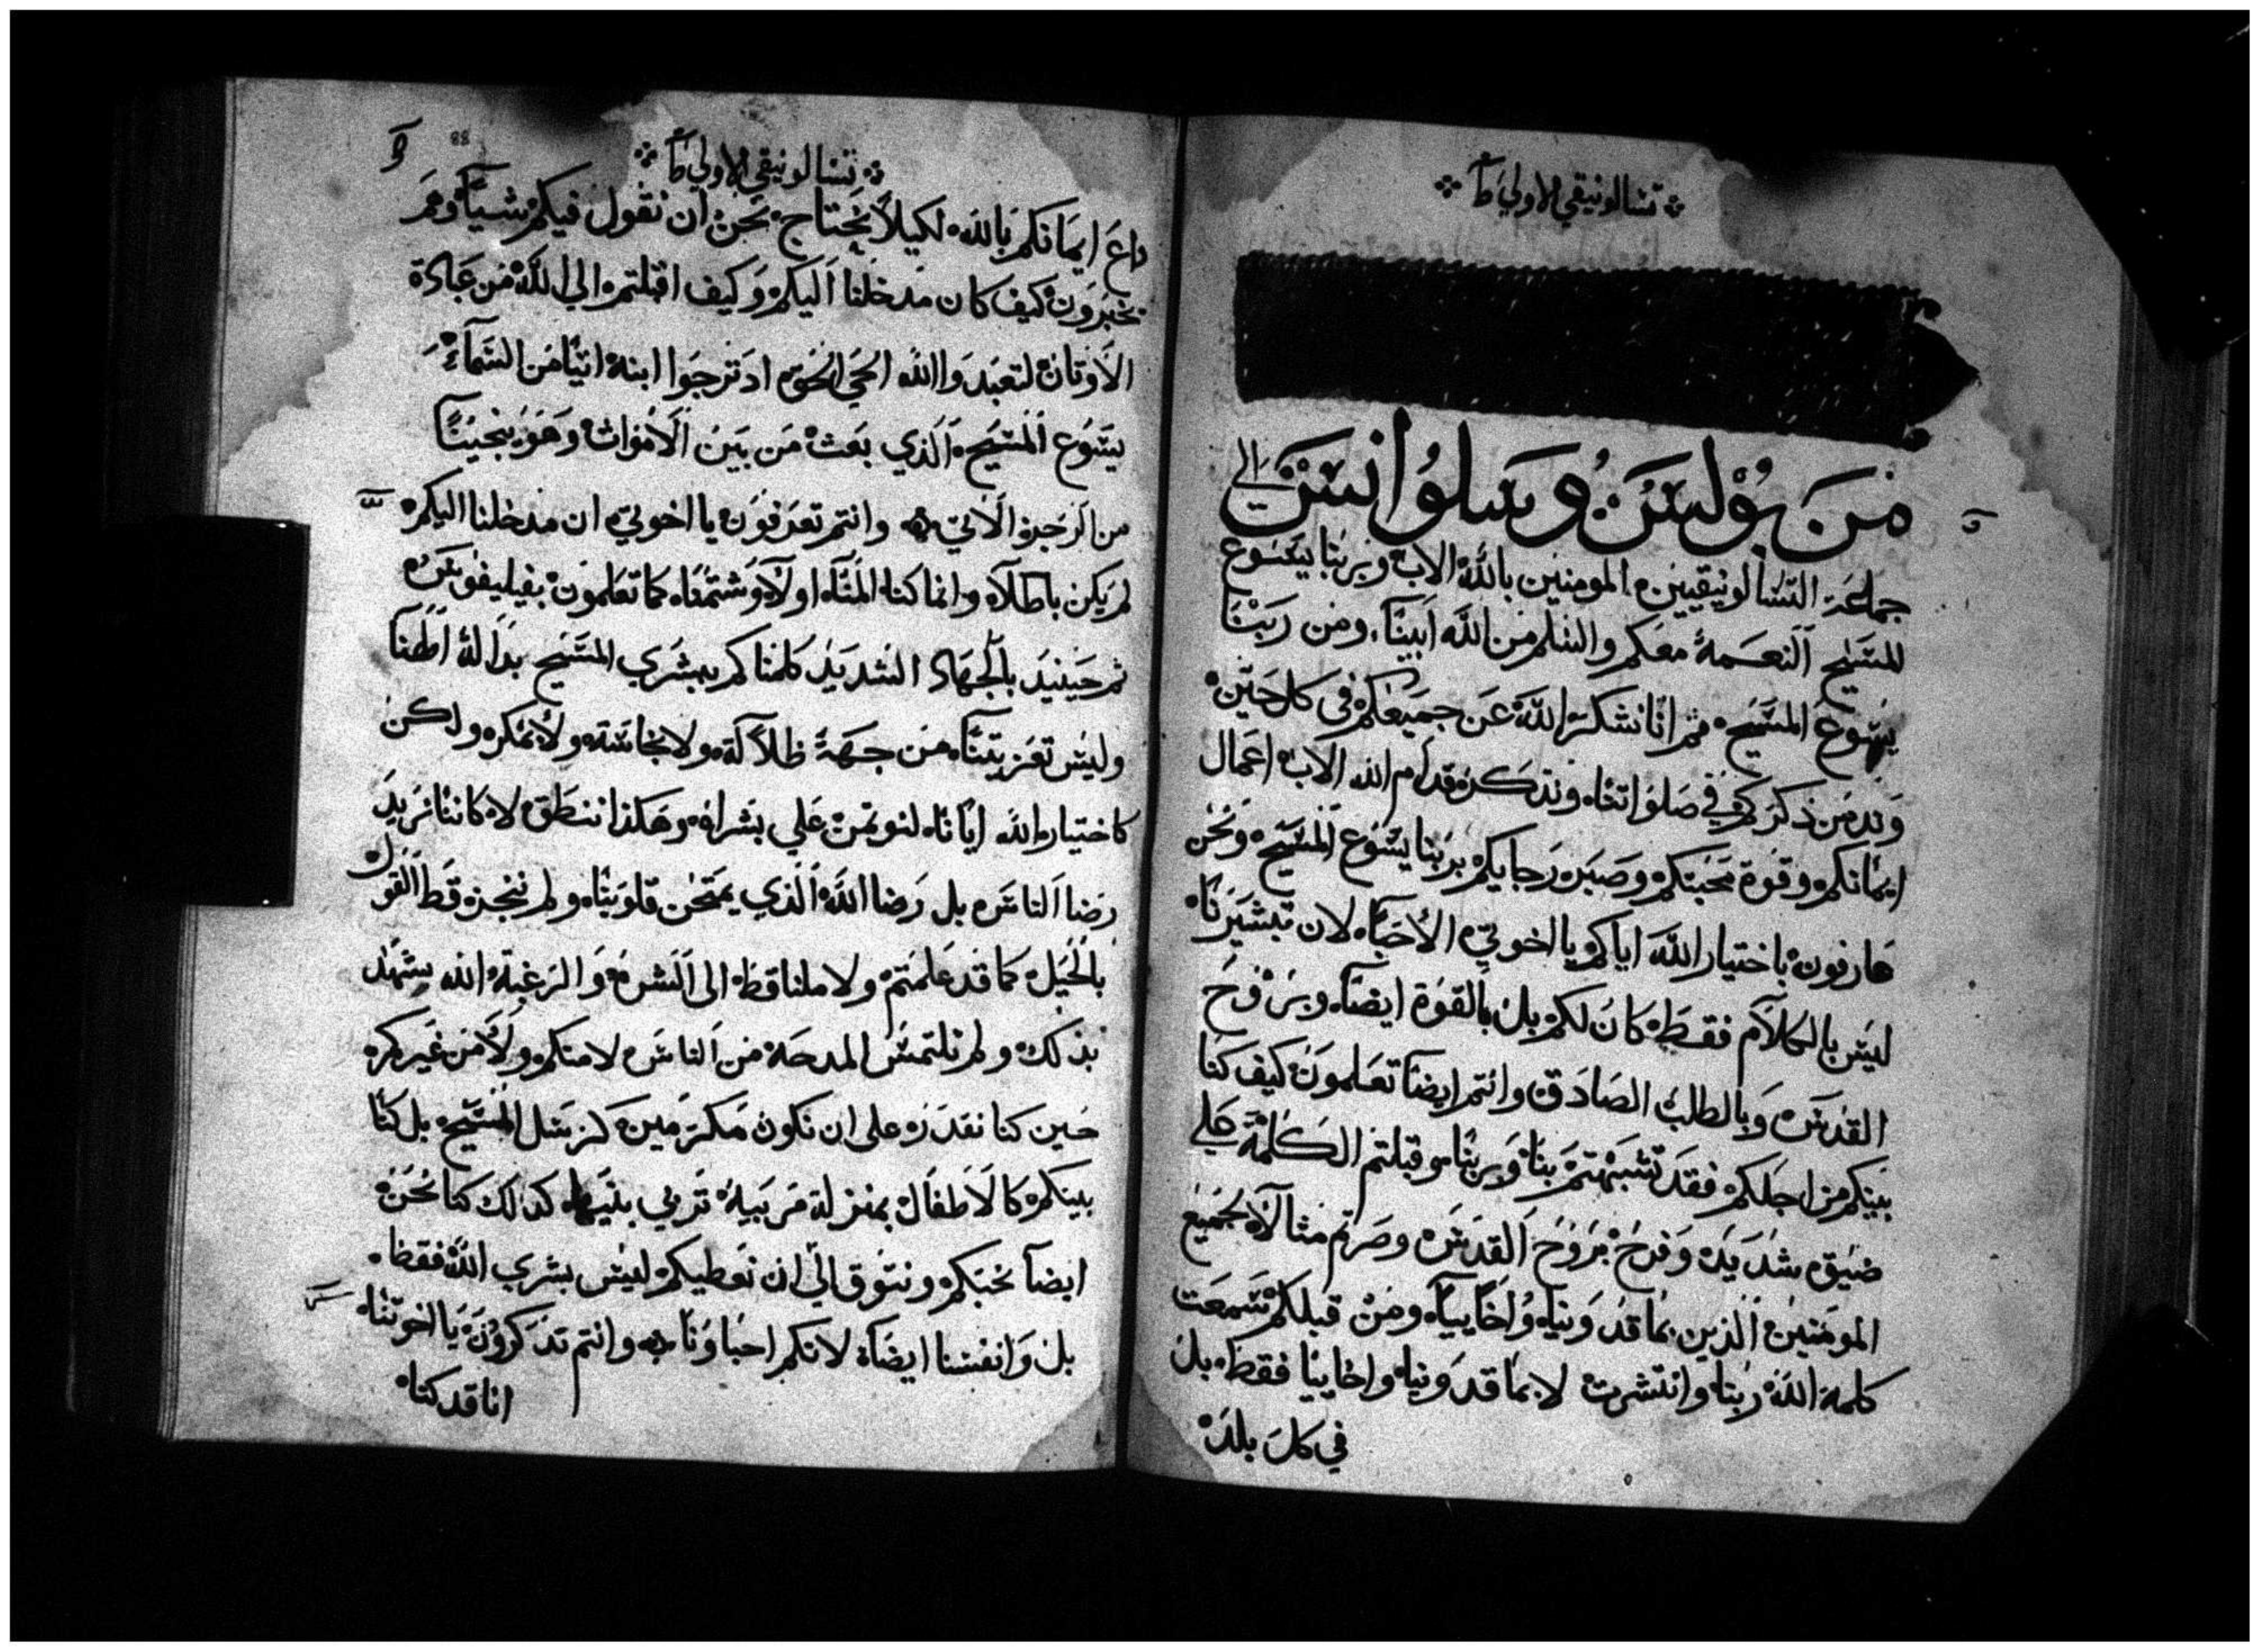 تسالونيقي الاولي ط
من بولس وسلوانس الي
جماعة التسالونيقيين المومنين بالله الاب وبربنا يسوع
المسيح النعمة معكم والسلم من الله ابينا ومن ربنا
يسوع المسيح ثم انا نشكر الله عن جميعكم في كل حين
وندمن ذكركم في صلواتنا ونتذكر قدام الله الاب اعمال
ايمانكم وقوة محبتكم وصبر رجايكم بربنا يسوع المسيح ونحن
عارفون باختيار الله اياكم يا اخوتي الاحبآ لان تبشيرنا
ليس بالكلام فقط كان لكم بل بالقوة ايضا وبروح
القدس وبالطلب الصادق وانتم ايضا تعلمون كيف كنا
بينكم من اجلكم فقد تشبهتم بنا وبربنا وقبلتم الكلمة علي
ضيق شديد وفرح بروح القدس وصرتم مثالا لجميع
المومنين الذين بماقدونيا واخاييا ومن قبلكم سمعت
كلمة الله ربنا وانتشرت لا بماقدونيا واخاييا فقط بل
في كل بلد
تسالونيقي الاولي ط
88
داع ايمانكم بالله لكيلا نحتاج نحن ان نقول فيكم شيا وهم
يخبرون كيف كان مدخلنا اليكم وكيف اقبلتم الي الله من عبادة
الاوثان لتعبدوا الله الحي الحق اذ ترجوا ابنه اتيا من السمآء
يسوع المسيح الذي بعث من بين الاموات وهو ينجينا
من الرجز الاتي وانتم تعرفون يا اخوتي ان مدخلنا اليكم
لم يكن باطلا وانما كنا المنا اولا وشتمنا كما تعلمون بفيليفوس
ثم حينيد بالجهاد الشديد كلمناكم ببشري المسيح بدالة الهنا
وليس تعزيتنا من جهة ظلالة ولا نجاسة ولا بمكر ولكن
كاختيار الله ايانا لنوتمن علي بشراه وهكذا ننطق لا كاننا نريد
رضا الناس بل رضا الله الذي يمتحن قلوبنا ولم ننجز قط القول
بالحيل كما قد علمتم ولا ملنا قط الي الشره والرغبة الله يشهد
بذلك ولم نلتمس المدحة من الناس لا منكم ولا من غيركم
حين كنا نقدر علي ان نكون مكرمين كرسل المسيح بل كنا
بينكم كالاطفال بمنزلة مربية تربي بنيها كذلك كنا نحن
ايضا نحبكم ونتوق الي ان نعطيكم ليس بشري الله فقط
بل وانفسنا ايضا لانكم احباونا وانتم تذكرون يا اخوتنا
انا قد كنا